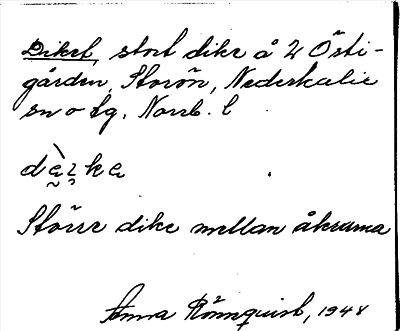 Diket, stort dike å 2 Östi-
gården, Storön, Nederkalix
sn o tg. Norrb. l
dḛ̀ɩ̫kɐ
Större dike mellan åkrarna
Anna Rönnquist, 1948